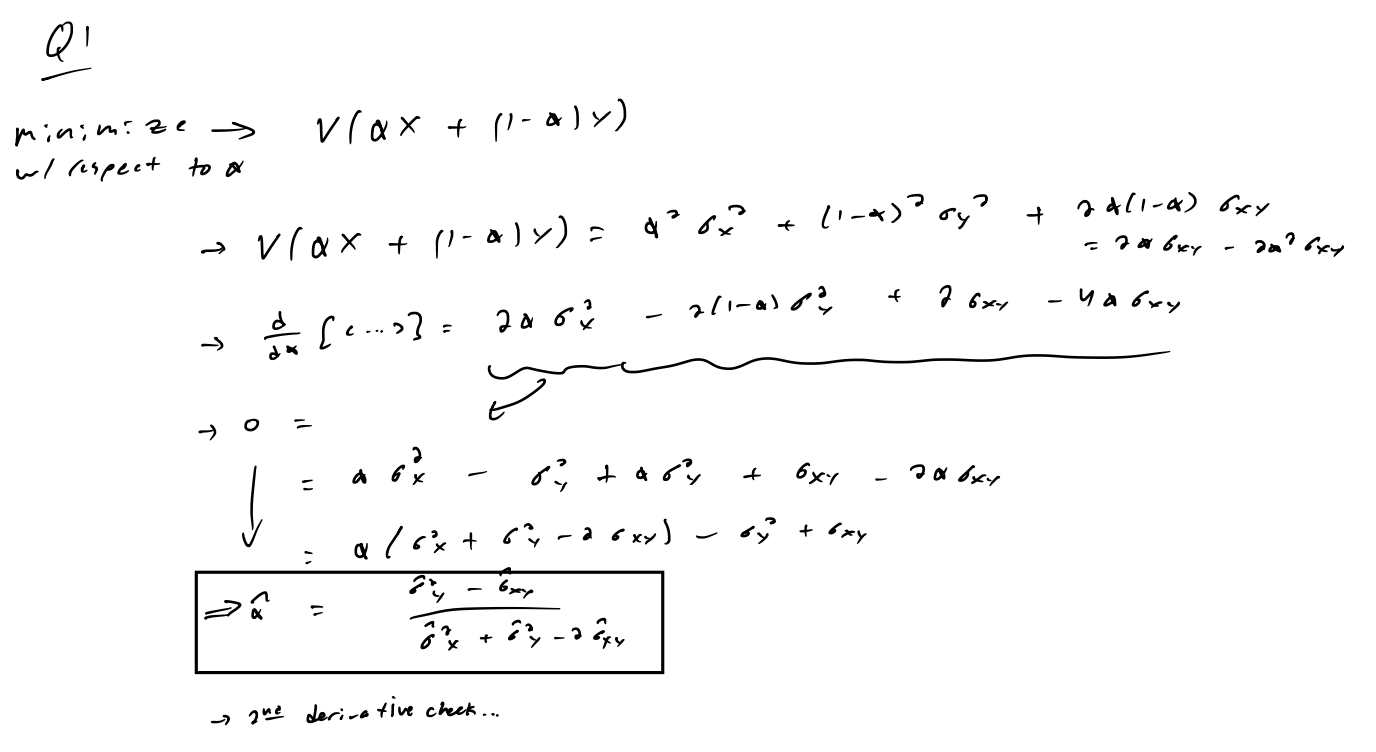 Q1
minimize → V(αX + (1-α)Y)
w/ respect to α
→ V(αX + (1-α)Y) = α² σx² + (1-α)² σy² + 2α(1-α) σxy
= 2α σxy - 2α² σxy
→ d/dα [(...)] = 2α σx² - 2(1-α) σy² + 2 σxy - 4α σxy
→ 0 =
= α σx² - σy² + α σy² + σxy - 2α σxy
= α (σx² + σy² - 2 σxy) - σy² + σxy
⇒ α̂ = (σ̂y² - σ̂xy) / (σ̂x² + σ̂y² - 2 σ̂xy)
→ 2nd derivative check...